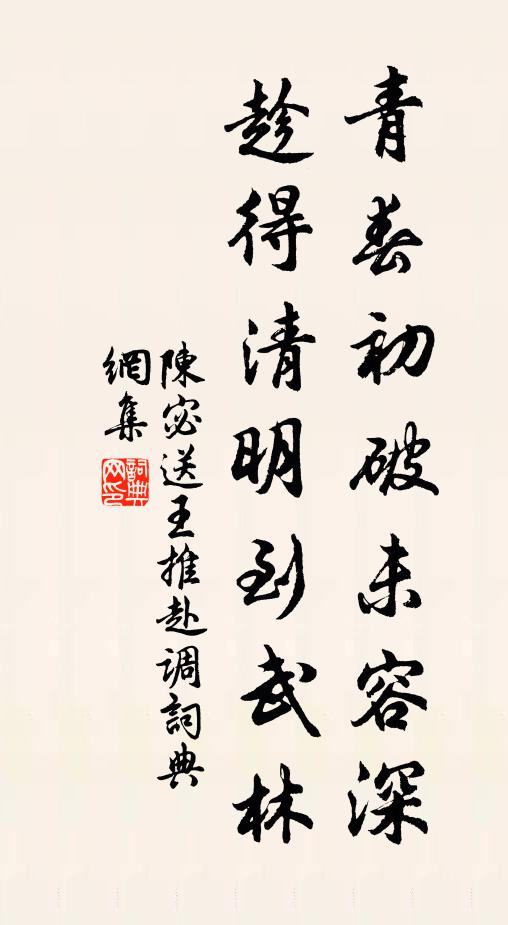 青春初破未容深
趁得清明到武林
陳宓送王推赴调詞典
網集
詞典網印